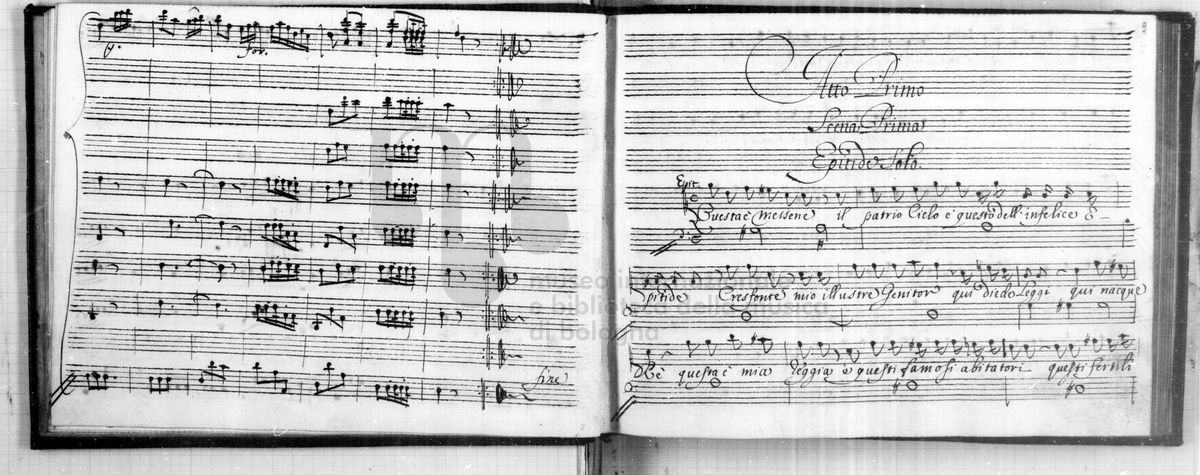 for.
fine
Atto Primo
Scena Prima
Epitide Solo.
Epit.
Questa è Messene il patrio Cielo è questo dell' infelice E-
pitide Cresfonte mio illustre Genitor qui diede Leggi qui nacque
Rè questa è mia Reggia e questi famosi abitatori questi fertili
museo internazionale
e biblioteca della musica
di bologna